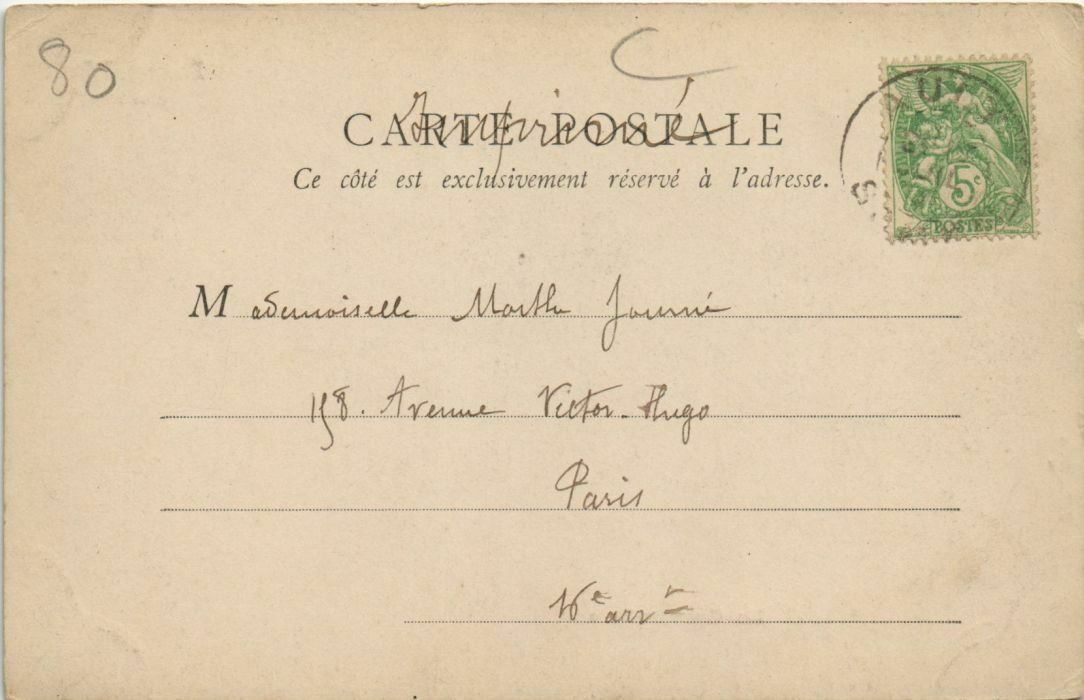 80
CARTE POSTALE
Imprimé
Ce côté est exclusivement réservé à l'adresse.
5c
POSTES
Mademoiselle Marthe Journé
158. Avenue Victor-Hugo
Paris
16e arrt